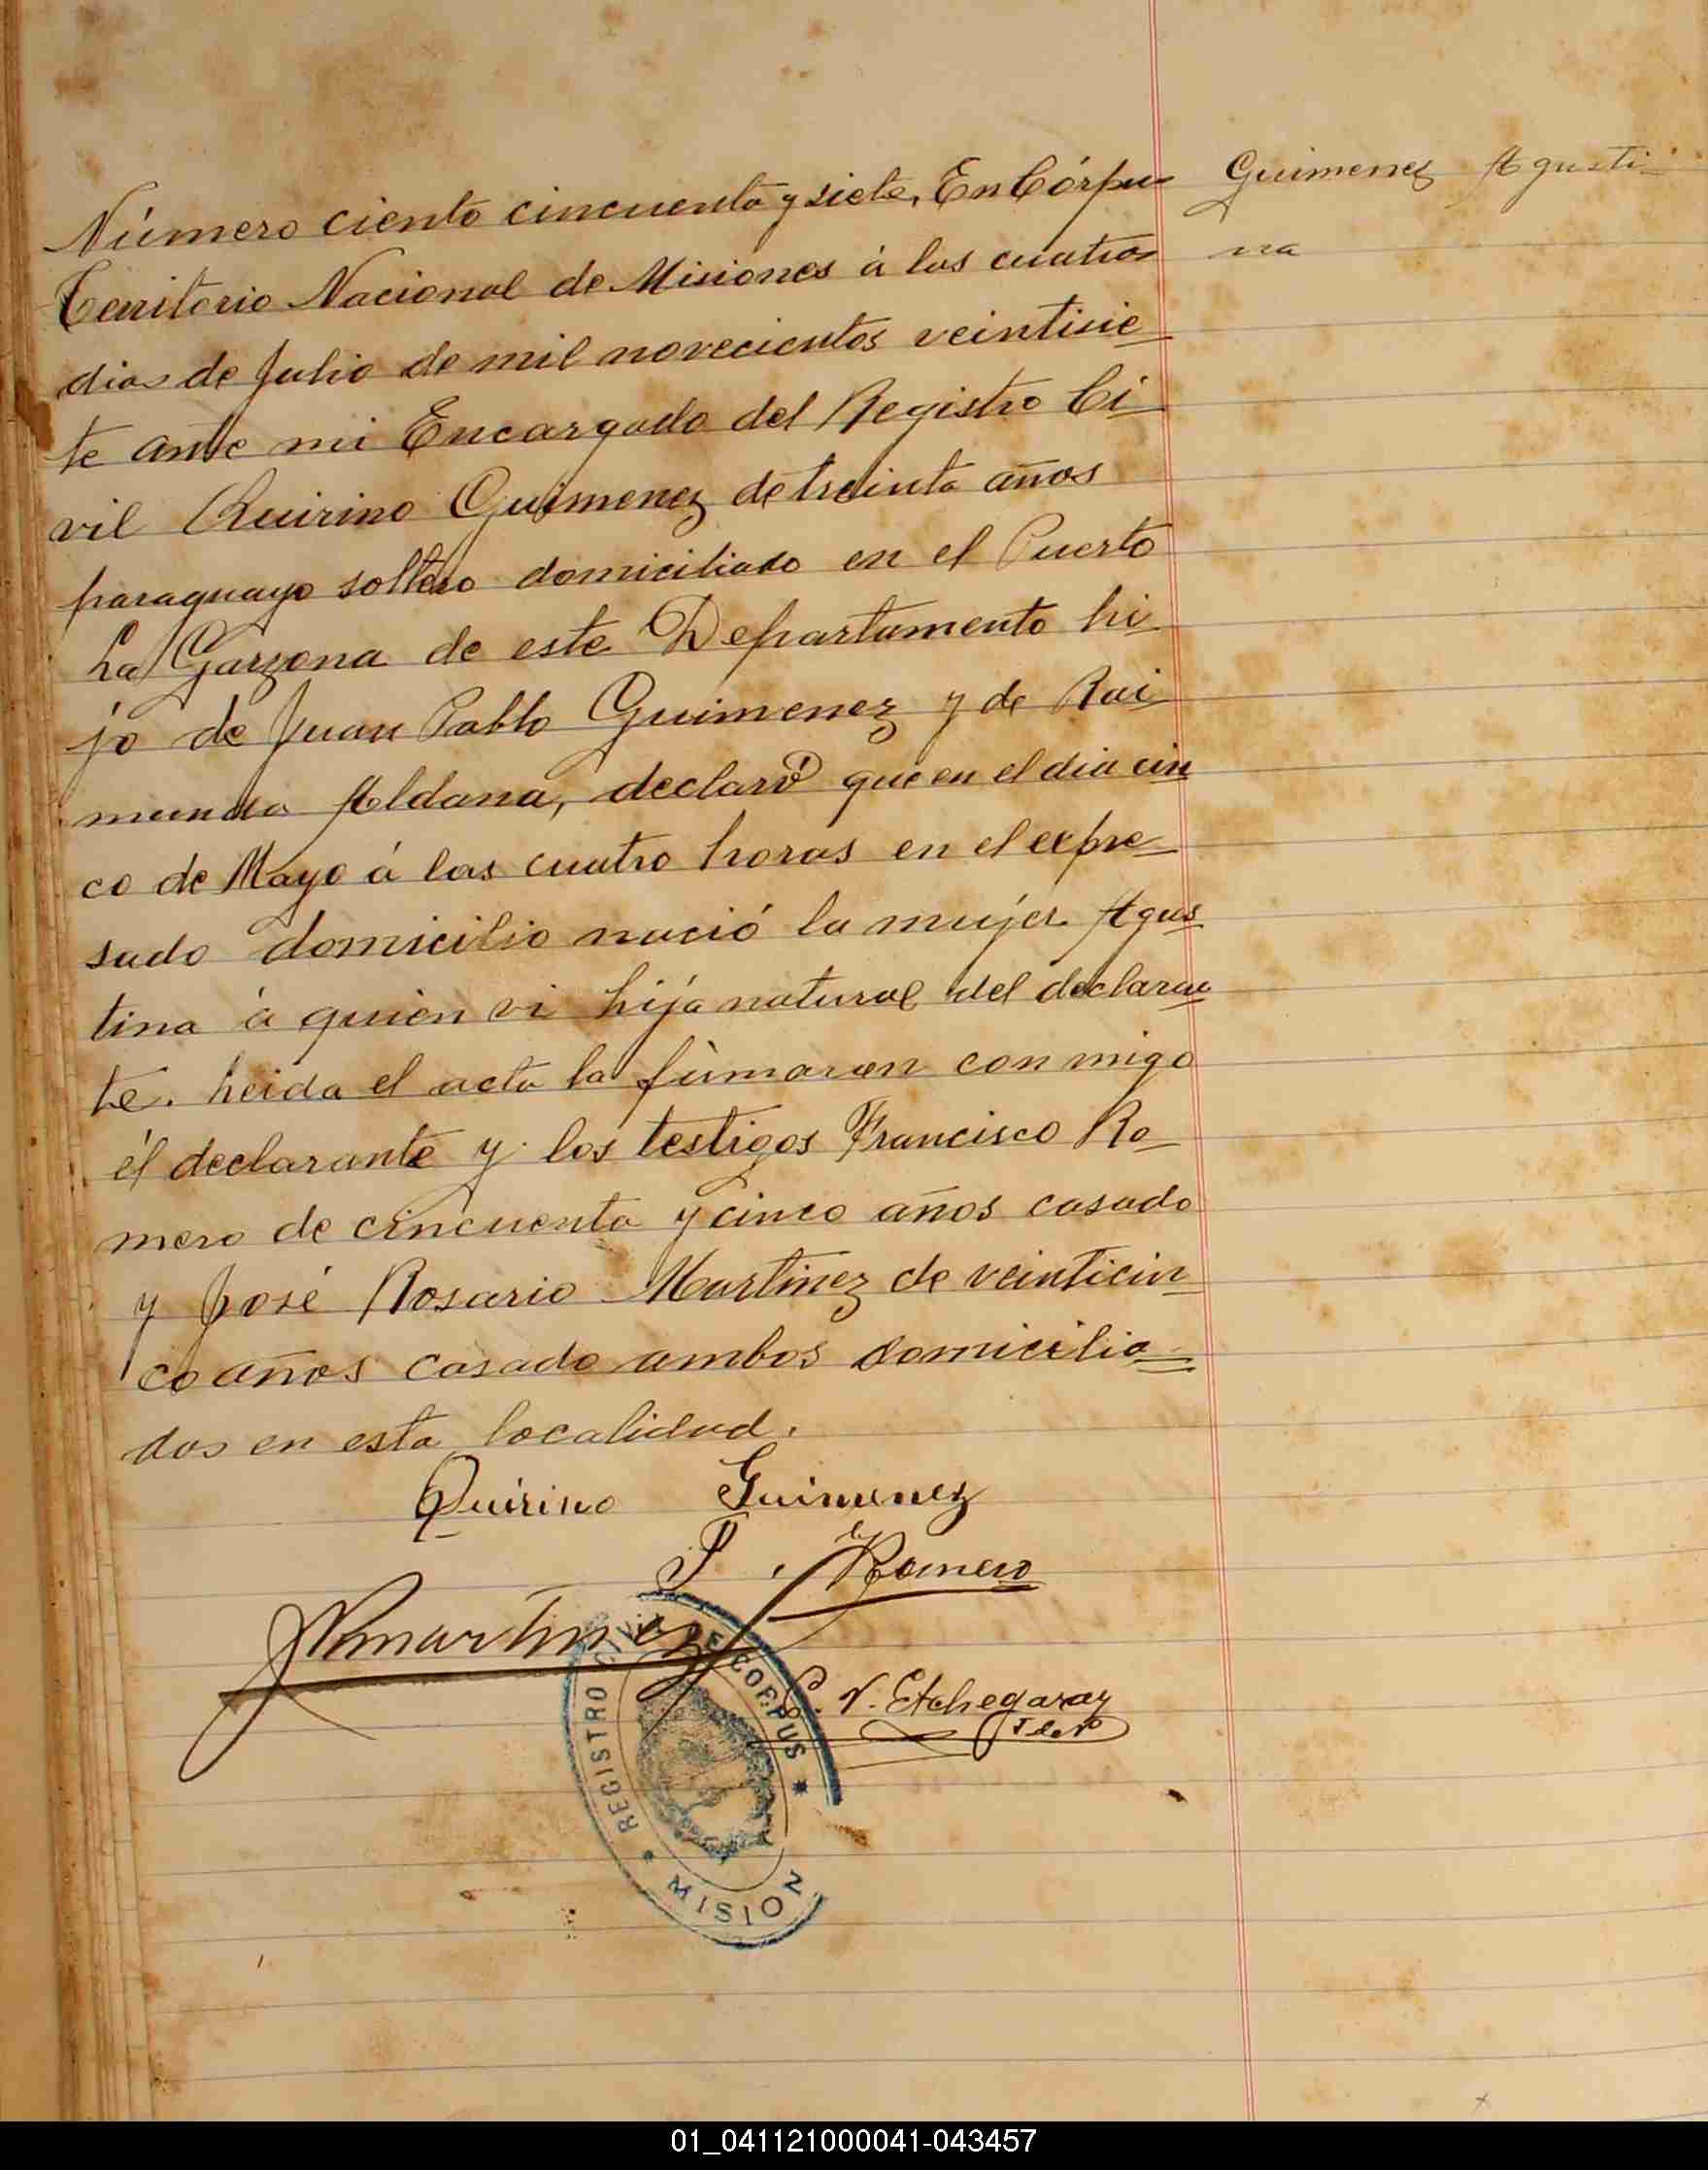 Guimenez Agusti-
na
Número ciento cincuenta y siete, En Córpus
Territorio Nacional de Misiones á los cuatro
dias de Julio de mil novecientos veintisie-
te ante mi Encargado del Registro Ci-
vil Quirino Guimenez de treinta años
paraguayo soltero domiciliado en el Puerto
La Garzona de este Departamento hi-
jo de Juan Pablo Guimenez y de Rai-
munda Aldana, declaró que en el dia cin
co de Mayo á las cuatro horas en el expre-
sado domicilio nació la mujer Agus-
tina á quien vi hija natural del declaran
te. Leida el acta la firmaron conmigo
él declarante y los testigos Francisco Ro-
mero de cincuenta y cinco años casado
y José Rosario Martinez de veinticin-
co años casado ambos domicilia-
dos en esta localidad.
Quirino Guimenez
Romero
Rmartinez
V. Etchegaray
REGISTRO CIVIL DE CORPUS
MISION
01_041121000041-043457